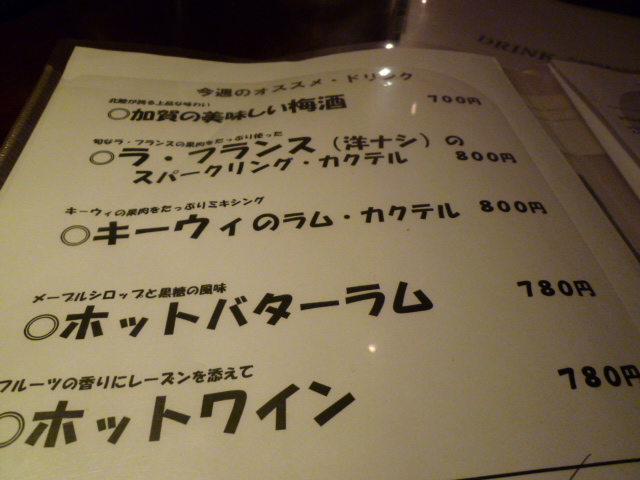 DRINK
今週のオススメ・ドリンク
北陸が誇る上品な味わい
◎加賀の美味しい梅酒 700円
旬なラ・フランスの果肉をたっぷり使った
◎ラ・フランス(洋ナシ)の
スパークリング・カクテル 800円
キーウィの果肉をたっぷりミキシング
◎キーウィのラム・カクテル 800円
メープルシロップと黒糖の風味
◎ホットバターラム 780円
フルーツの香りにレーズンを添えて
◎ホットワイン 780円